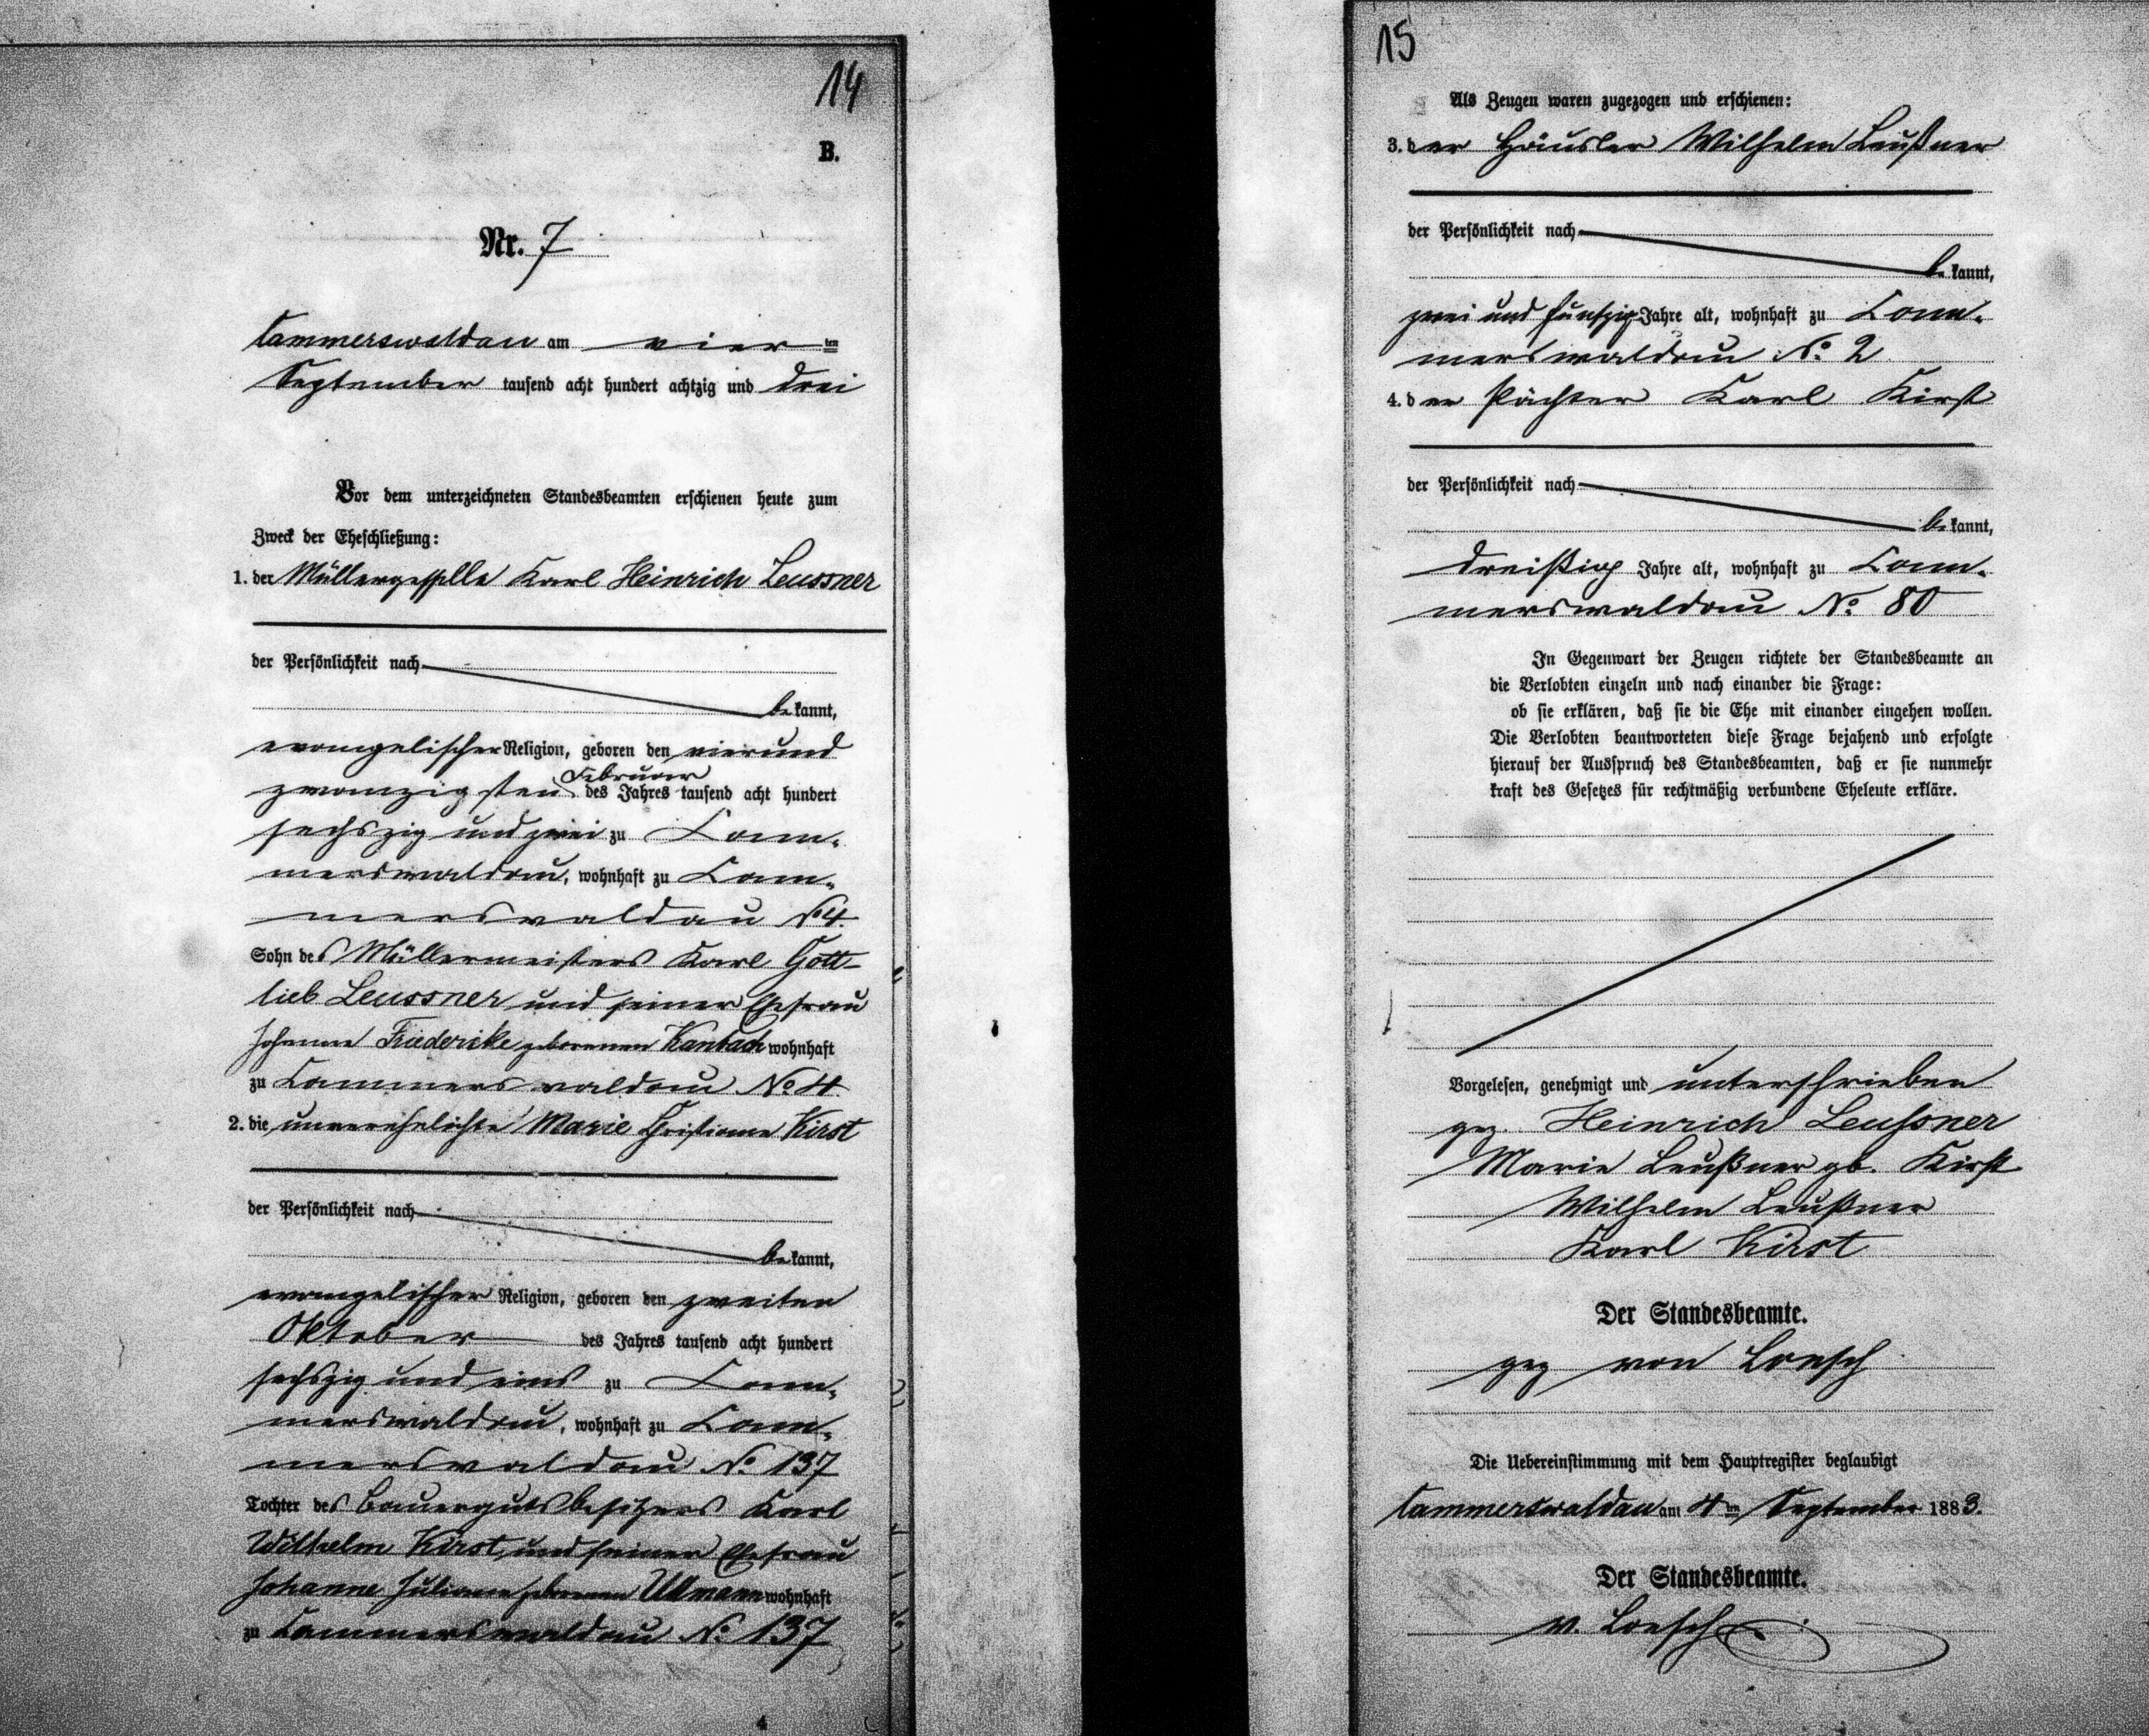 14
B.
Nr. 7
Cammerswaldau am vier ten
September tausend acht hundert achtzig und drei
Vor dem unterzeichneten Standesbeamten erschienen heute zum
Zweck der Eheschließung:
1. der Müllergeselle Karl Heinrich Leussner
der Persönlichkeit nach
bekannt,
evangelischer Religion, geboren den vierund
Februar
zwanzigsten des Jahres tausend acht hundert
sechszig und zwei zu Cam-
merswaldau, wohnhaft zu Cam-
merswaldau No 4.
Sohn des Müllermeisters Karl Gott-
lieb Leussner und seiner Ehefrau
Johanne Friedericke geborenen Kanbach wohnhaft
zu Cammerswaldau No 4.
2. die unverehelichte Marie Christiane Kirst
der Persönlichkeit nach
bekannt,
evangelischer Religion, geboren den zweiten
Oktober des Jahres tausend acht hundert
sechszig und eins zu Cam-
merswaldau, wohnhaft zu Cam-
merswaldau No 137
Tochter des Bauergutsbesitzers Karl
Wilhelm Kirst, und seiner Ehefrau
Johanne Juliane geborenen Ullmann wohnhaft
zu Cammerswaldau No 137
4
15
Als Zeugen waren zugezogen und erschienen:
3. der Häusler Wilhelm Leußner
der Persönlichkeit nach
bekannt,
zwei und fünfzig Jahre alt, wohnhaft zu Cam-
merswaldau No 2
4. der Pächter Karl Kirst
der Persönlichkeit nach
bekannt,
dreißig Jahre alt, wohnhaft zu Cam-
merswaldau No 80
In Gegenwart der Zeugen richtete der Standesbeamte an
die Verlobten einzeln und nach einander die Frage:
ob sie erklären, daß sie die Ehe mit einander eingehen wollen.
Die Verlobten beantworteten diese Frage bejahend und erfolgte
hierauf der Ausspruch des Standesbeamten, daß er sie nunmehr
kraft des Gesetzes für rechtmäßig verbundene Eheleute erkläre.
Vorgelesen, genehmigt und unterschrieben
gez. Heinrich Leussner
Marie Leußner gb. Kirst
Wilhelm Leußner
Karl Kirst
Der Standesbeamte.
gez von Loesch
Die Uebereinstimmung mit dem Hauptregister beglaubigt
Cammerswaldau am 4 ten September 1883.
Der Standesbeamte.
v. Loesch